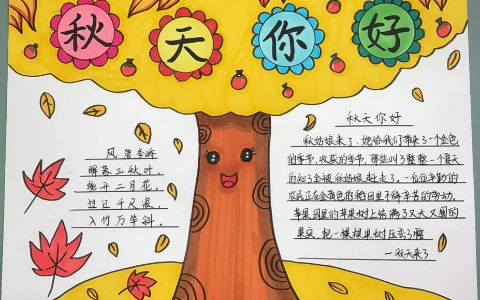 秋天你好
风 唐 李峤
解落三秋叶，
能开二月花。
过江千尺浪，
入竹万竿斜。
秋天你好
秋姑娘来了，她给我们带来了一个金色
的季节，收获的季节，那些叫了整整一个夏天
的知了全被秋姑娘赶走了。一位位辛勤的
农民正在金黄色的稻田里不辞辛苦的劳动，
苹果园里的苹果树上结满了又大又圆的
果实，把一棵棵果树压弯了腰
—秋天来了